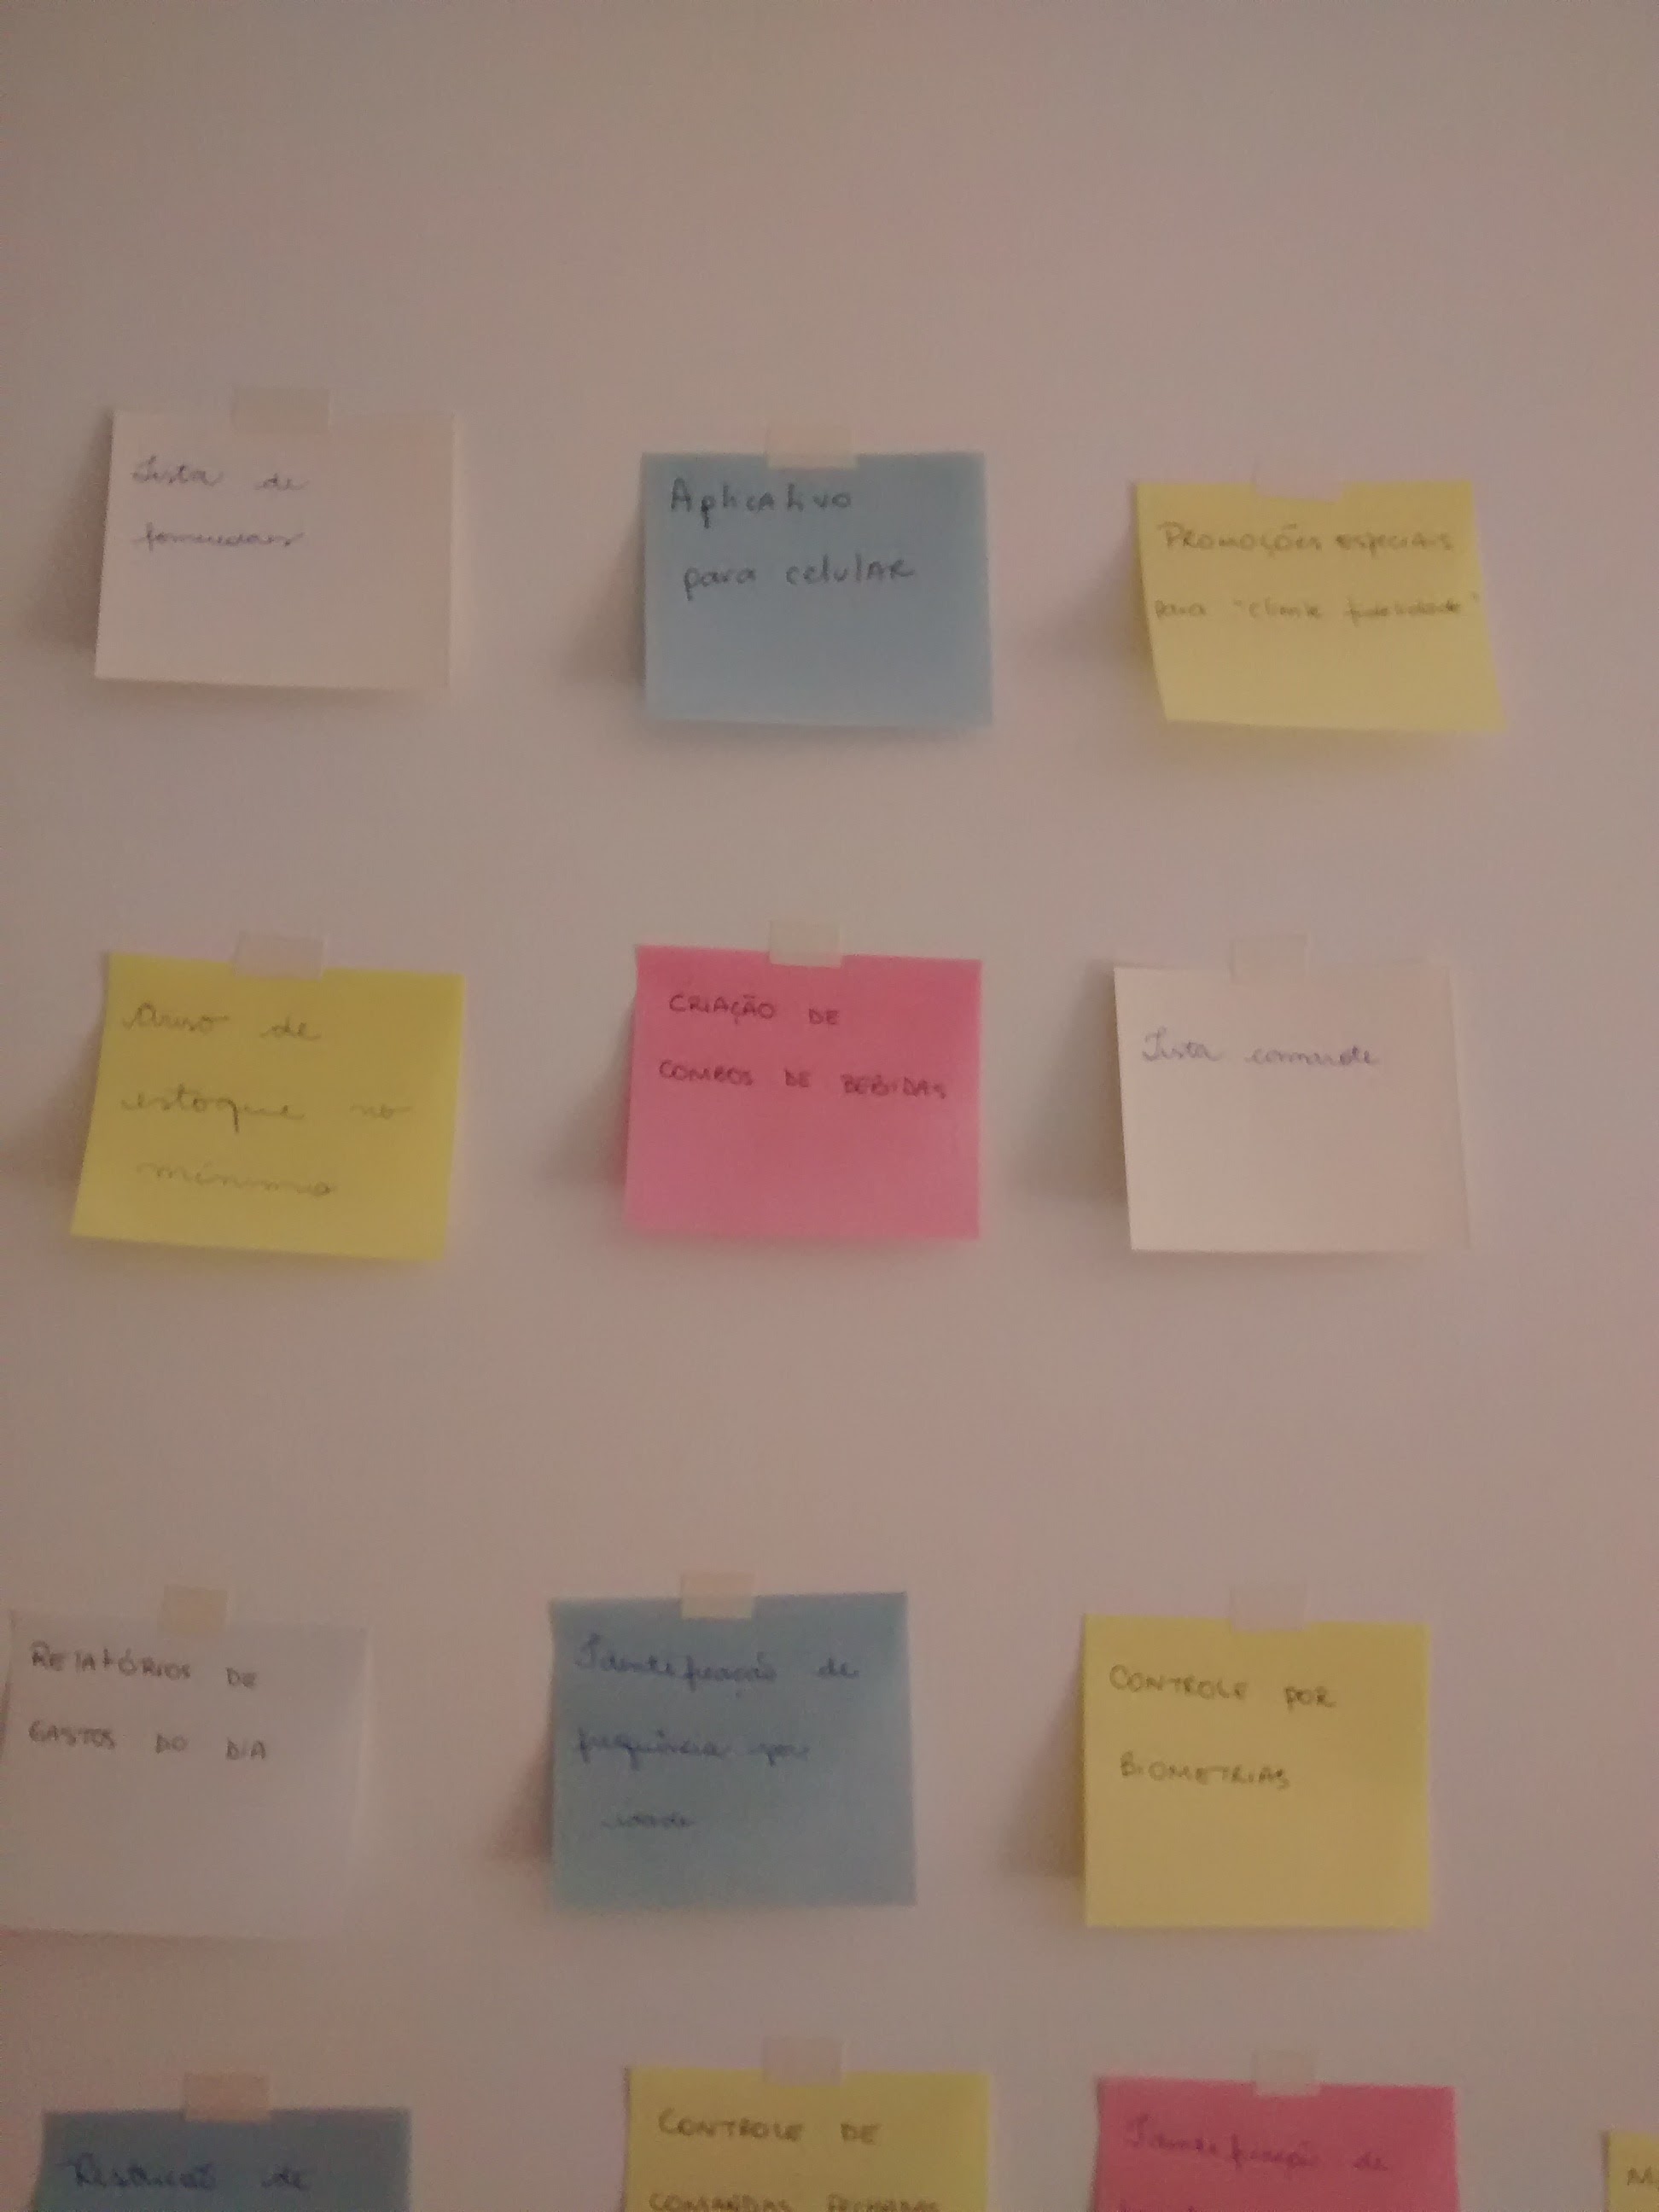 Lista de
fornecedores
Aplicativo
para celular
PROMOÇÕES ESPECIAIS
para "cliente fidelidade"
Aviso de
estoque no
mínimo
CRIAÇÃO DE
COMBOS DE BEBIDAS
Lista
RELATÓRIOS DE
GASTOS DO DIA
Identificação de
frequência por
idade
CONTROLE POR
BIOMETRIAS
de
CONTROLE DE
COMANDAS FECHADAS
Identificação de